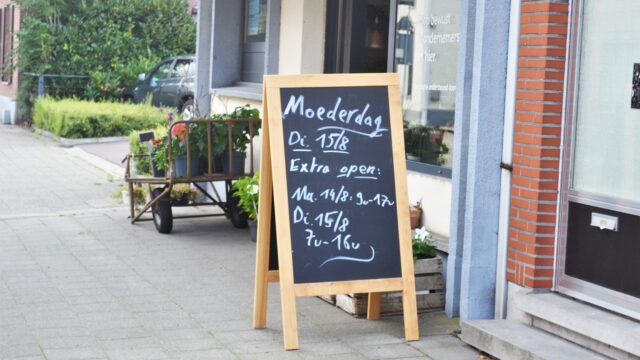 Moederdag
Di. 15/8
Extra open:
Ma. 14/8: 9u-17u
Di. 15/8
7u-16u
bewust
ondernemers
hier.